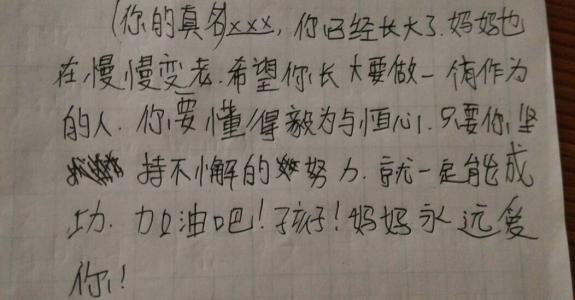 (你的真名)xxx, 你已经长大了.妈妈也
在慢慢变老.希望你长大要做一有作为
的人.你要懂得毅为与恒心.只要你坚
持不懈的努力.就一定能成
功.加油吧!孩子!妈妈永远爱
你!